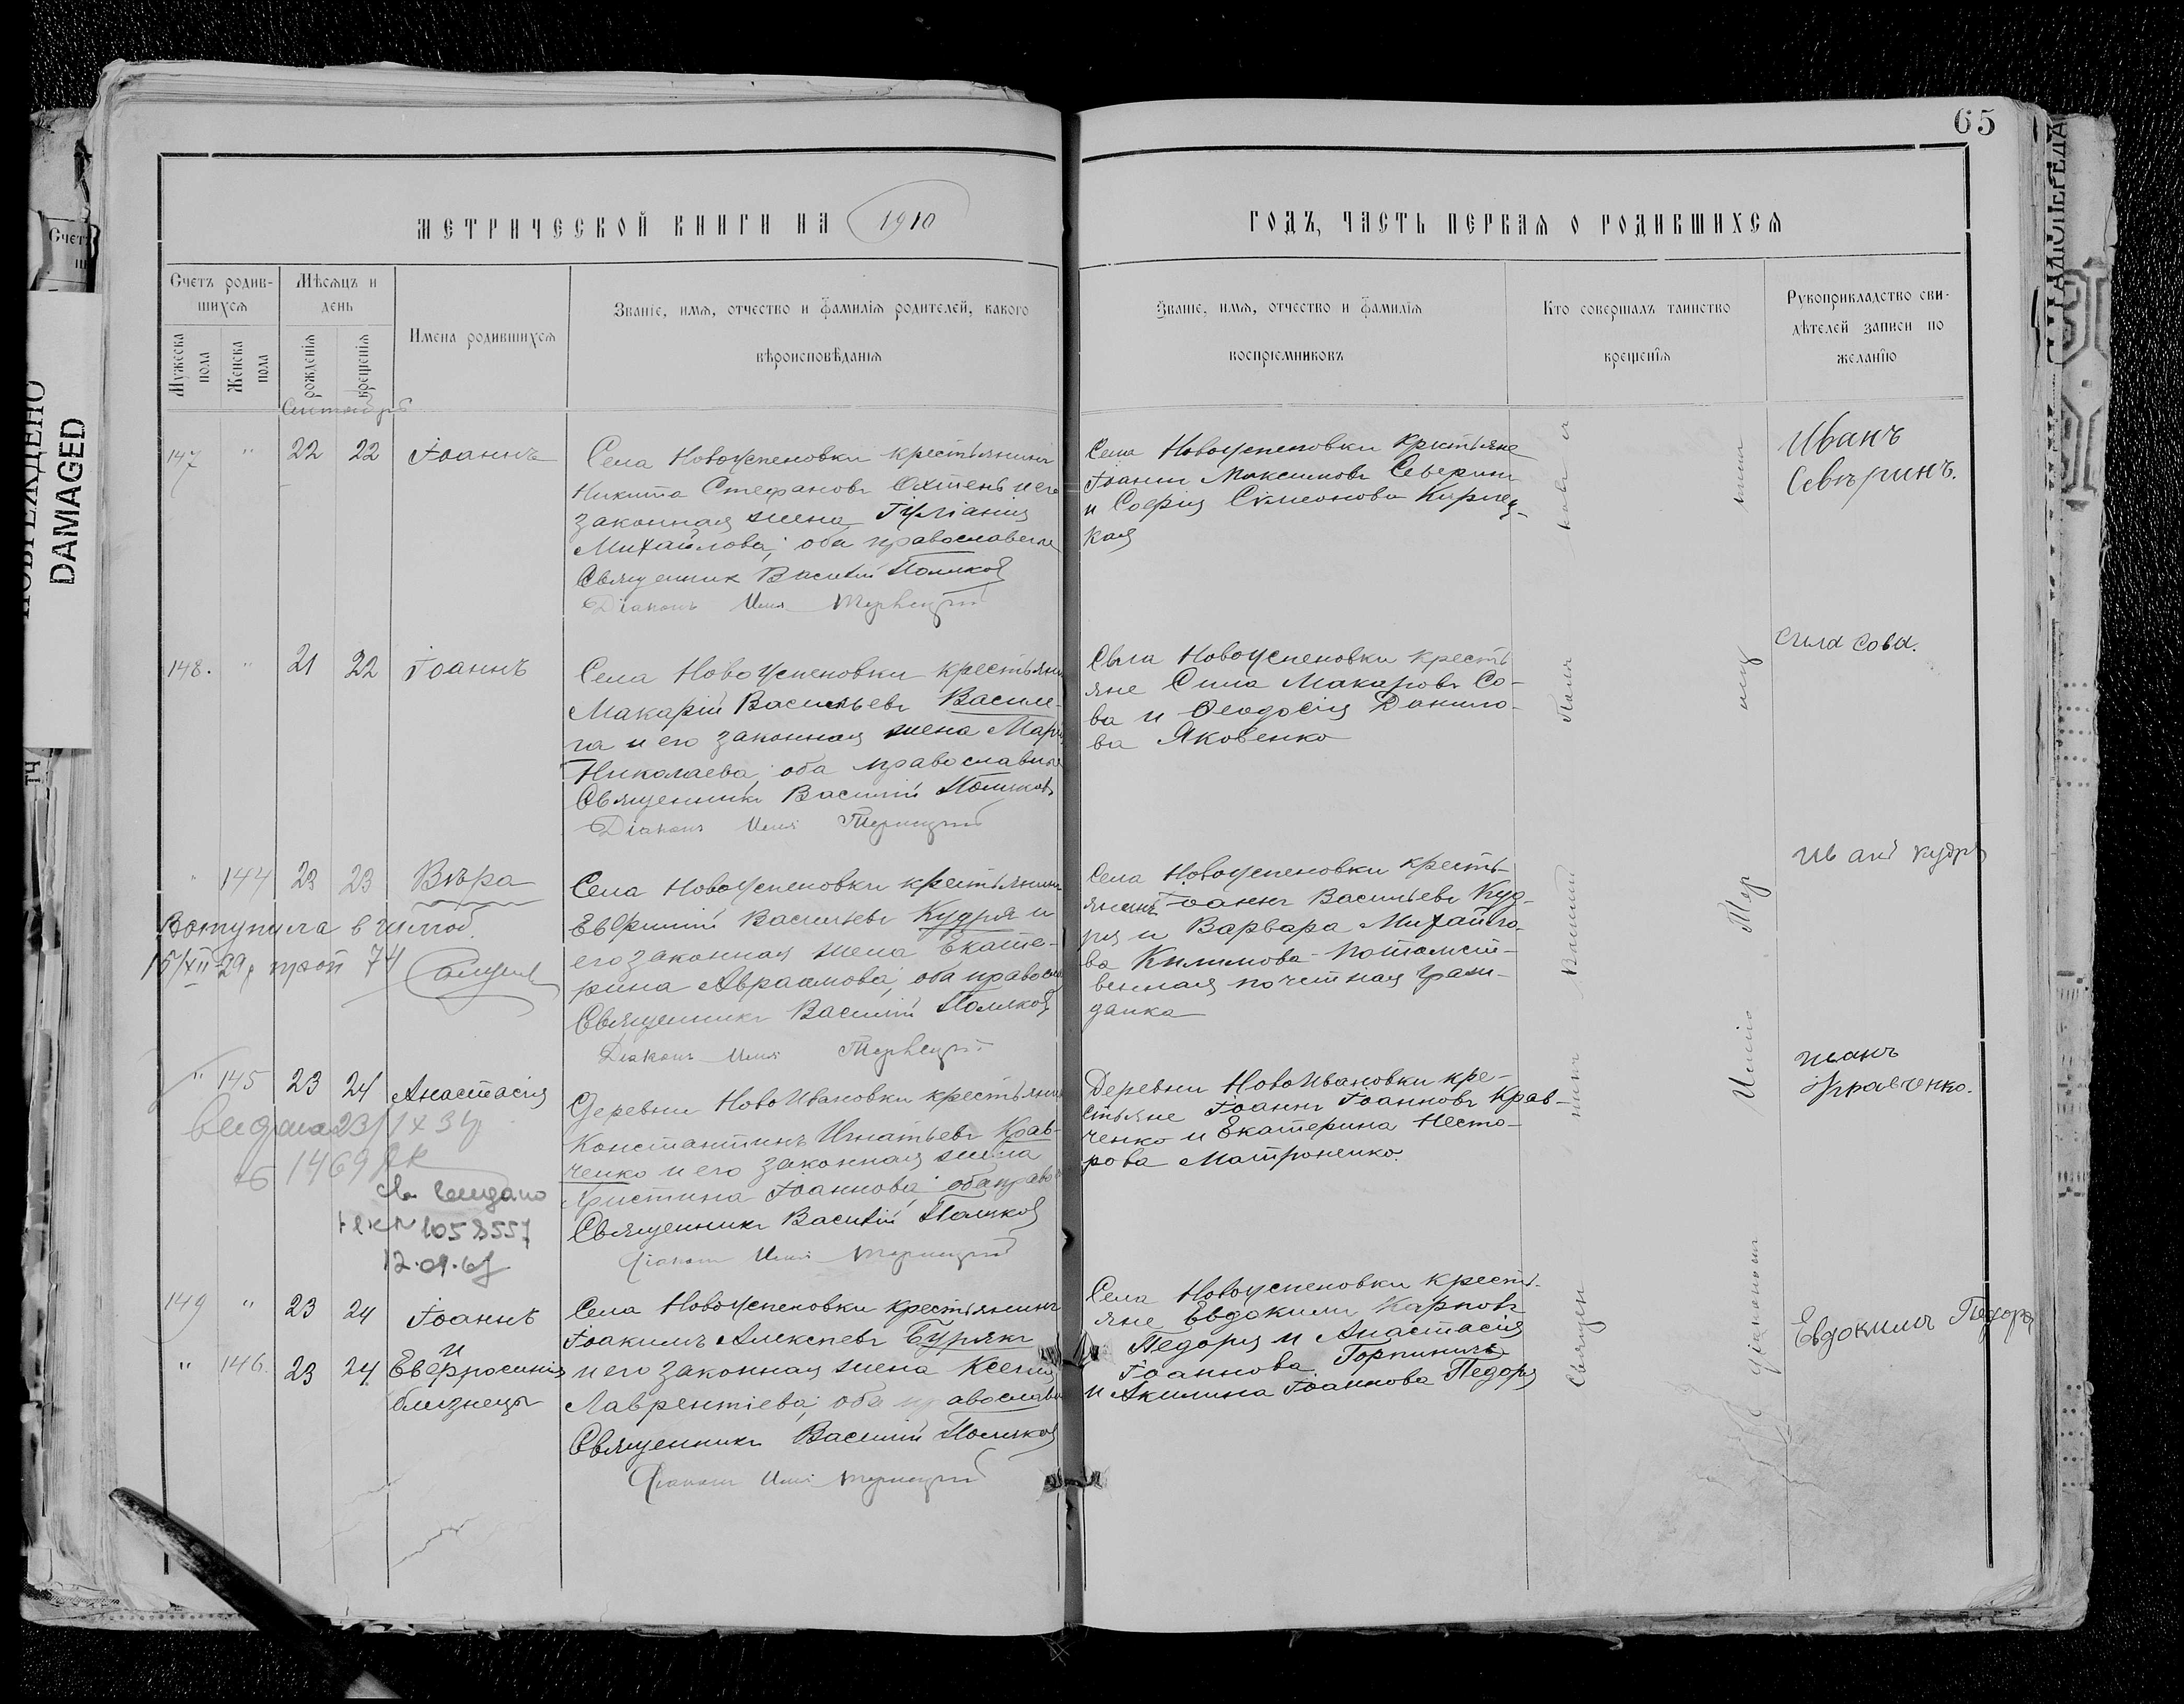 65
МЕТРИЧЕСКОЙ КНИГИ НА 1910
ГОДЪ, ЧАСТЬ ПЕРВАЯ О РОДИВШИХСЯ
Счетъ родив-
шихся
Мужеска пола
Женска пола
Мѣсяцъ и
день
рожденія
крещенія
Имена родившихся
Званіе, имя, отчество и фамилія родителей, какого
вѣроисповѣданія
Званіе, имя, отчество и фамилія
воспріемниковъ
Кто совершалъ таинство
крещенія
Рукоприкладство сви-
дѣтелей записи по
желанію
Сентябрь
147 " 22 22 Іоаннъ
Села Новоуспеновки крестьянинъ
Никита Стефановъ Охтень и его
законная жена Іуліанія
Михайлова; оба православные
Священник Василій Поляков
Діаконъ Илія
Села Новоуспеновки крстьяне
Іоанн Максимовъ Северин
и Софія Сѵмеонова
кая
Иванъ
Севѣринъ.
148. " 21 22 Іоаннъ
Села Новоуспеновки крестьянин
Макарій Васильевъ Васили-
га и его законная жена Марія
Николаева; оба православные
Священникъ Василій Поляковъ
Діаконъ Илія
Села Новоуспеновки кресть
яне Сила Макаровъ Со-
ва и Ѳеодосія Данило-
ва Яковенко
Сила Сова.
" 144 23 23 Вѣра
Вступила в
15/XII-29 74
Села Новоуспеновки крестьянинъ
Евфимій Васильевъ Кудря и
его законная жена Екате-
рина Авраамова; оба правосл
Священникъ Василій Поляков
Діаконъ Илія
Села Новоуспеновки кресть-
янинъ Іоаннъ Васильевъ Куд-
ря и Варвара Михайло-
ва Климова - потомст-
венная почетная граж-
данка
Иванъ Кудря
" 145 23 24 Анастасія
выдана 23/IX 34
1469
выдано
1058557
12.09.67
Деревни НовоИвановки крестьянин
Константинъ Игнатьевъ Крав-
ченко и его законная жена
Христина Іоаннова; оба право
Священникъ Василій Поляков
Діаконъ Илія
Деревни НовоИвановки кре-
стьяне Іоаннъ Іоанновъ Крав-
ченко и Екатерина Несто-
рова Матроненко.
Иванъ
Кравченко.
149 " 23 24 Іоаннъ
и
" 146. 23 24 Евфросинія
близнецы
Села Новоуспеновки крестьянинъ
Іоакимъ Алексѣевъ Бурякъ
и его законная жена Ксенія
Лаврентіева; оба православн
Священникъ Василій Поляков
Діаконъ Илія
Села Новоуспеновки крестья-
яне Евдокимъ Карповъ
Педоря и Анастасія
Іоаннова Горпиничъ
и Акилина Іоаннова Педоря
Евдокимъ Педоря
Священ
никъ
Василій
Поля
ковъ и
діаконъ
Илія
Тер
ПОВРЕЖДЕНО
DAMAGED